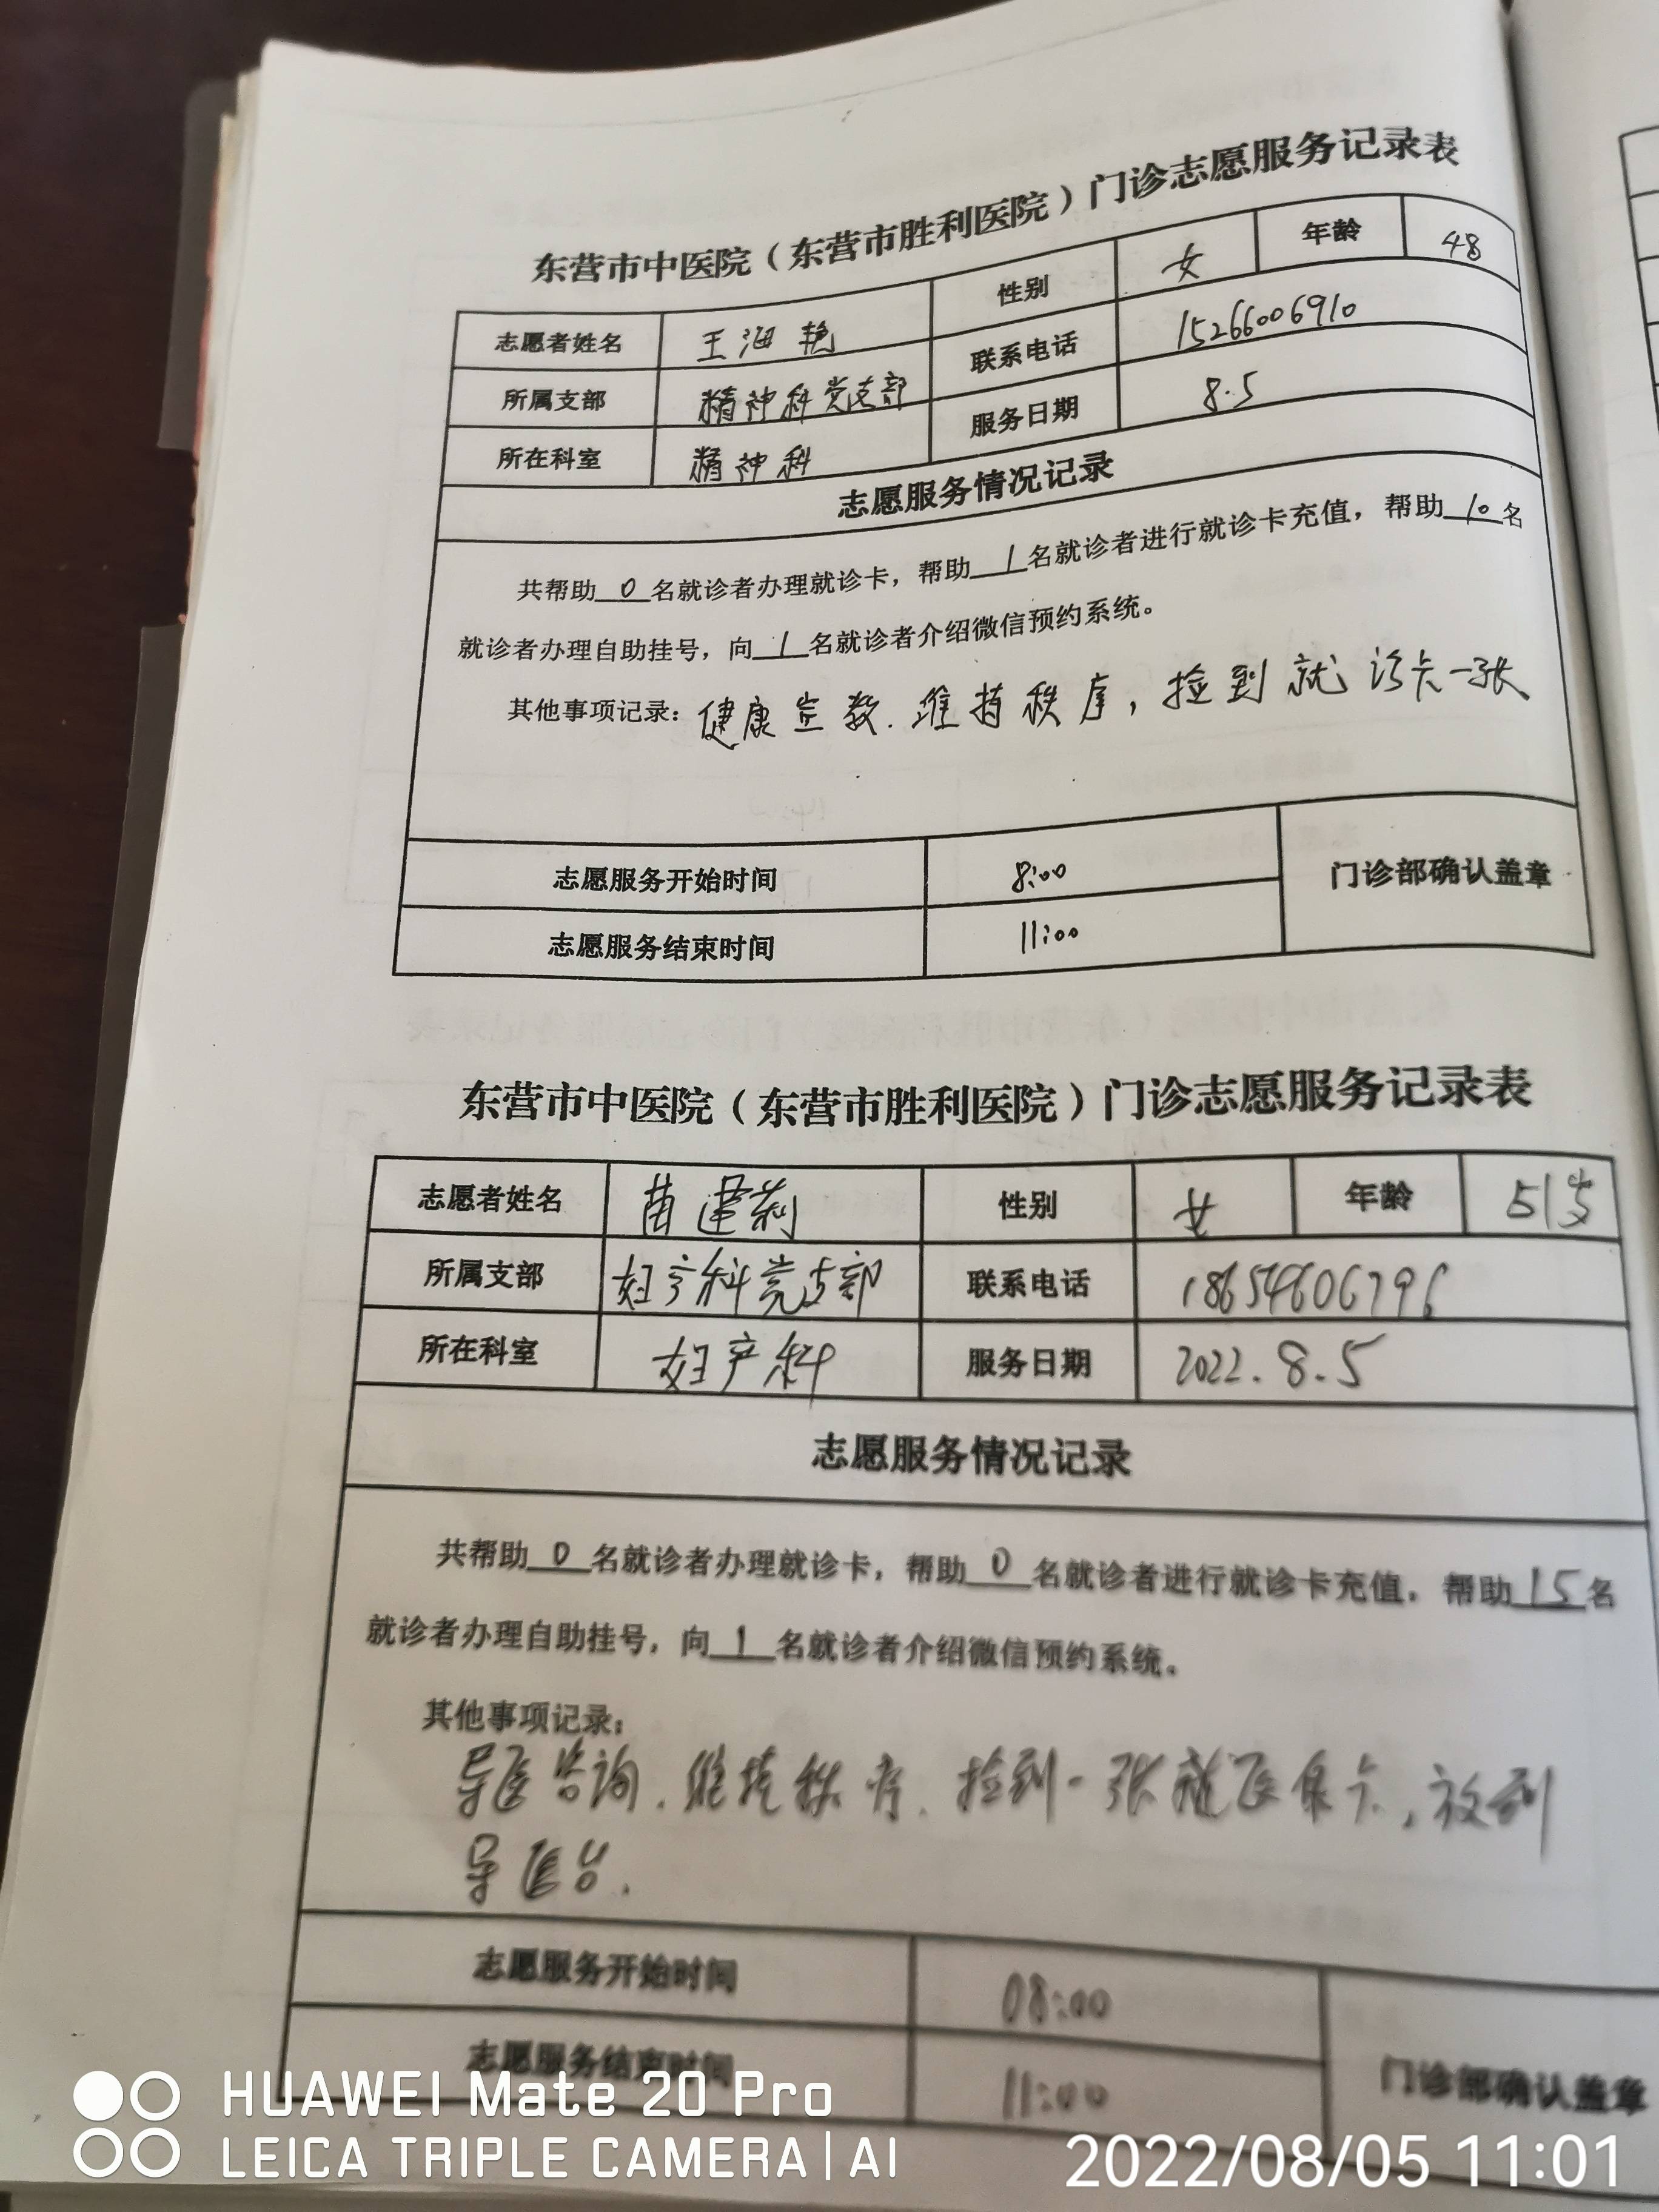 东营市中医院（东营市胜利医院）门诊志愿服务记录表
志愿者姓名 王海艳 性别 女 年龄 48
所属支部 精神科党支部 联系电话 15266006910
所在科室 精神科 服务日期 8.5
志愿服务情况记录
共帮助0名就诊者办理就诊卡，帮助1名就诊者进行就诊卡充值，帮助10名
就诊者办理自助挂号，向1名就诊者介绍微信预约系统。
其他事项记录：健康宣教.维持秩序，捡到就诊卡一张
志愿服务开始时间 8:00 门诊部确认盖章
志愿服务结束时间 11:00
东营市中医院（东营市胜利医院）门诊志愿服务记录表
志愿者姓名 苗建莉 性别 女 年龄 51岁
所属支部 妇产科党支部 联系电话 18654606796
所在科室 妇产科 服务日期 2022.8.5
志愿服务情况记录
共帮助0名就诊者办理就诊卡，帮助0名就诊者进行就诊卡充值，帮助15名
就诊者办理自助挂号，向1名就诊者介绍微信预约系统。
其他事项记录：
导医咨询.维持秩序.捡到一张医保卡，放到
导医台.
志愿服务开始时间 08:00 门诊部确认盖章
志愿服务结束时间 11:00
HUAWEI Mate 20 Pro
LEICA TRIPLE CAMERA | AI
2022/08/05 11:01